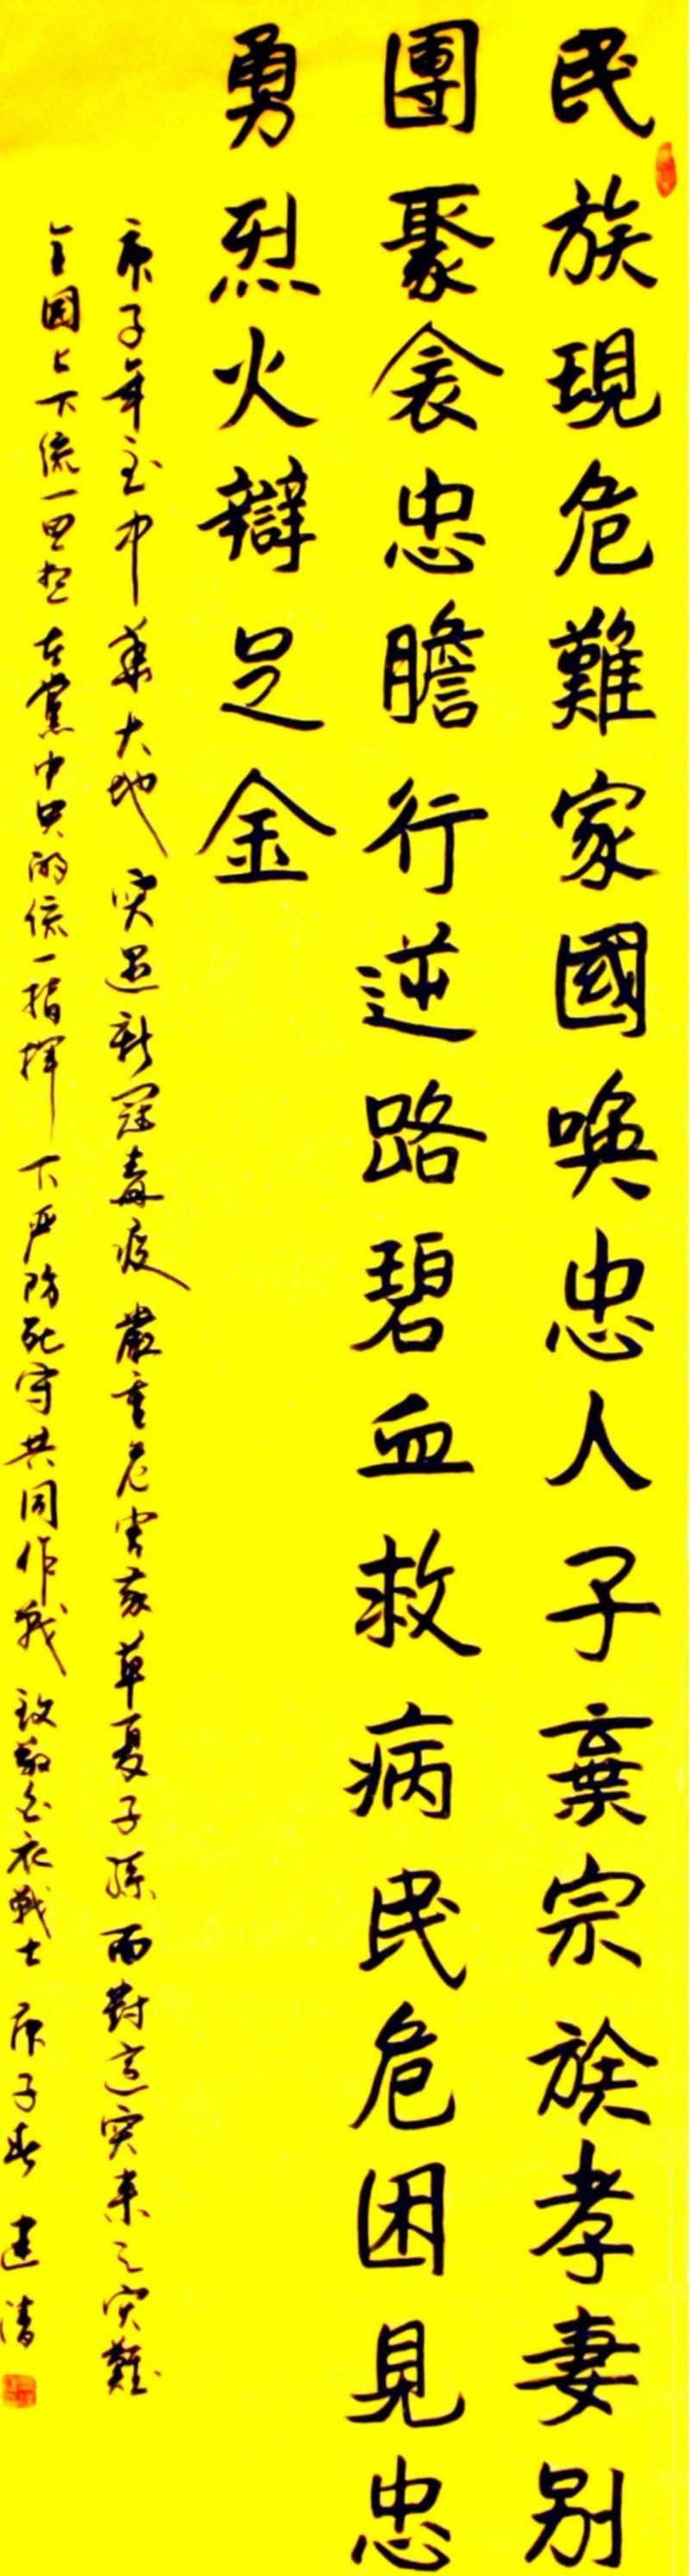 民族現危難家國喚忠人子棄宗族孝妻别
團聚衾忠瞻行逆路碧血救病民危困見忠
勇烈火辯足金
庚子年至中華大地突遇新冠毒疫嚴重危害家草夏子孫面對這突来之灾難
全國上下统一思想在黨中央的统一指揮下严防死守共同作战致敬白衣戰士庚子春建清